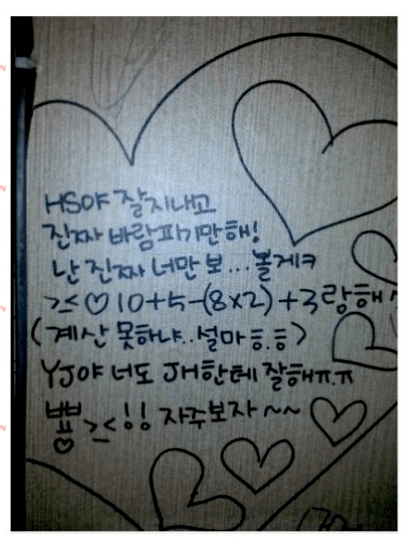 HS야 잘지내고
진짜 바람피기만해!
난 진짜 너만 보...볼게ㅋ
><♡10+5-(8x2)+3랑해!
(계산 못하냐..설마ㅎ.ㅎ)
YJ야 너도 JH한테 잘해ㅠ.ㅠ
쁖><!! 자주보자~~